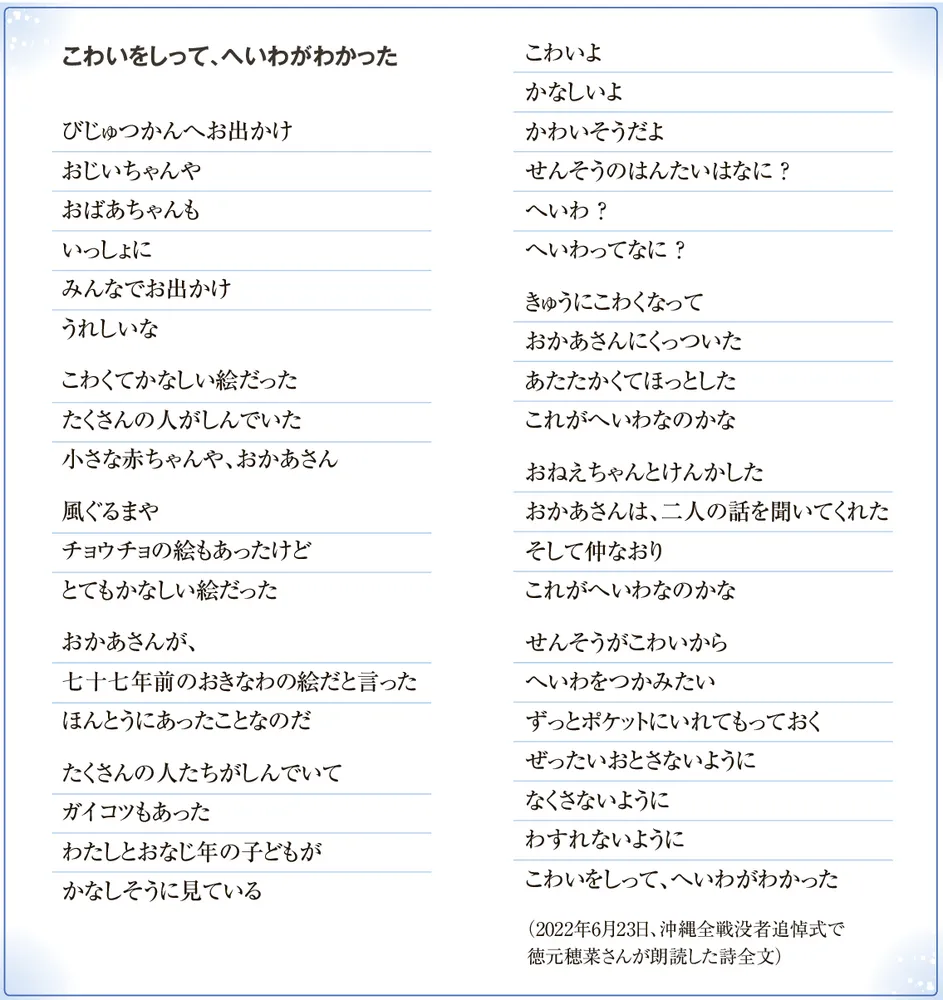 こわいをしって、へいわがわかった
びじゅつかんへお出かけ
おじいちゃんや
おばあちゃんも
いっしょに
みんなでお出かけ
うれしいな
こわくてかなしい絵だった
たくさんの人がしんでいた
小さな赤ちゃんや、おかあさん
風ぐるまや
チョウチョの絵もあったけど
とてもかなしい絵だった
おかあさんが、
七十七年前のおきなわの絵だと言った
ほんとうにあったことなのだ
たくさんの人たちがしんでいて
ガイコツもあった
わたしとおなじ年の子どもが
かなしそうに見ている
こわいよ
かなしいよ
かわいそうだよ
せんそうのはんたいはなに？
へいわ？
へいわってなに？
きゅうにこわくなって
おかあさんにくっついた
あたたかくてほっとした
これがへいわなのかな
おねえちゃんとけんかした
おかあさんは、二人の話を聞いてくれた
そして仲なおり
これがへいわなのかな
せんそうがこわいから
へいわをつかみたい
ずっとポケットにいれてもっておく
ぜったいおとさないように
なくさないように
わすれないように
こわいをしって、へいわがわかった
（2022年6月23日、沖縄全戦没者追悼式で
徳元穂菜さんが朗読した詩全文）